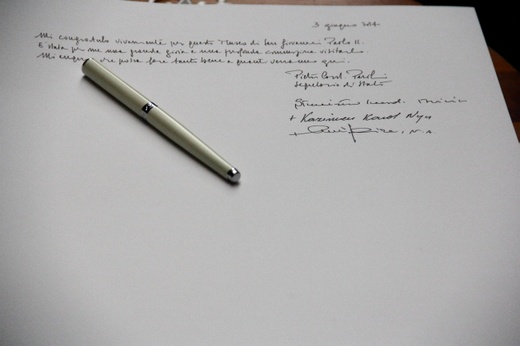 3 giugno 2014
Mi congratulo vivamente per questo Museo di San Giovanni Paolo II.
È stata per me una grande gioia e una profonda commozione visitarlo.
Mi auguro che possa fare tanto bene a quanti verranno qui.
Pietro Card. Parolin
Segretario di Stato
+ Kazimierz Kard. Nycz